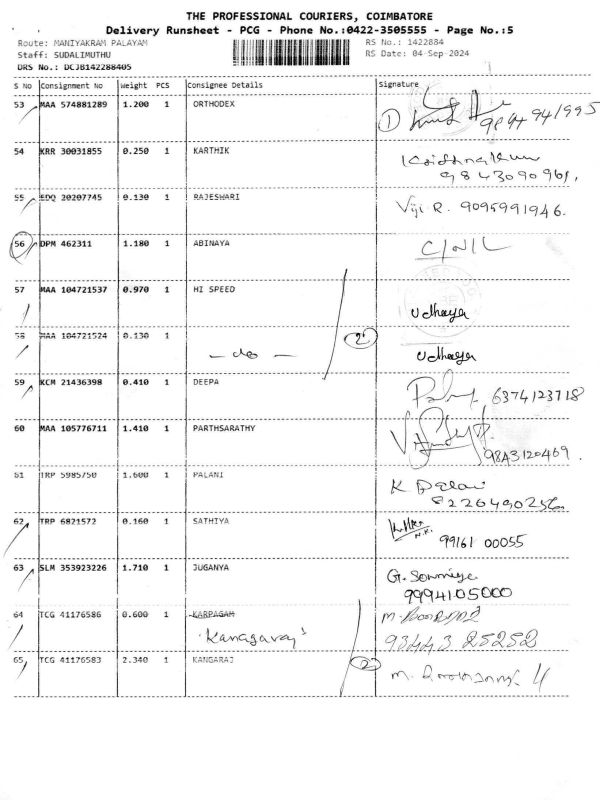 THE PROFESSIONAL COURIERS, COIMBATORE
Delivery Runsheet - PCG - Phone No.:0422-3505555 - Page No.:5
Route: MANIYAKRAM PALAYAM RS No.: 1422884
Staff: SUDALIMUTHU RS Date: 04-Sep-2024
DRS No.: DCJB142288405
S No Consignment No Weight PCS Consignee Details Signature
53 MAA 574881289 1.200 1 ORTHODEX 1
54 KRR 30031855 0.250 1 KARTHIK
9843090961,
55 EDQ 20207745 0.130 1 RAJESWARI Viji R. 9095991946.
56 DPM 462311 1.180 1 ABINAYA C/N/L
57 MAA 104721537 0.970 1 HI SPEED Udhaya
58 MAA 104721524 0.130 1 - do - 2 Udhaya
59 KCM 21436398 0.410 1 DEEPA 6374123718
60 MAA 105776711 1.410 1 PARTHSARATHY
9843120469.
61 TRP 5985750 1.600 1 PALANI K Palani
8226490256
62 TRP 6821572 0.160 1 SATHIYA
N.K. 99161 00055
63 SLM 353923226 1.710 1 JUGANYA G. Sowmiya
9994105000
64 TCG 41176586 0.600 1 KARPAGAM
'Kanagaraj' 93443 25252
65 TCG 41176583 2.340 1 KANGARAJ 2